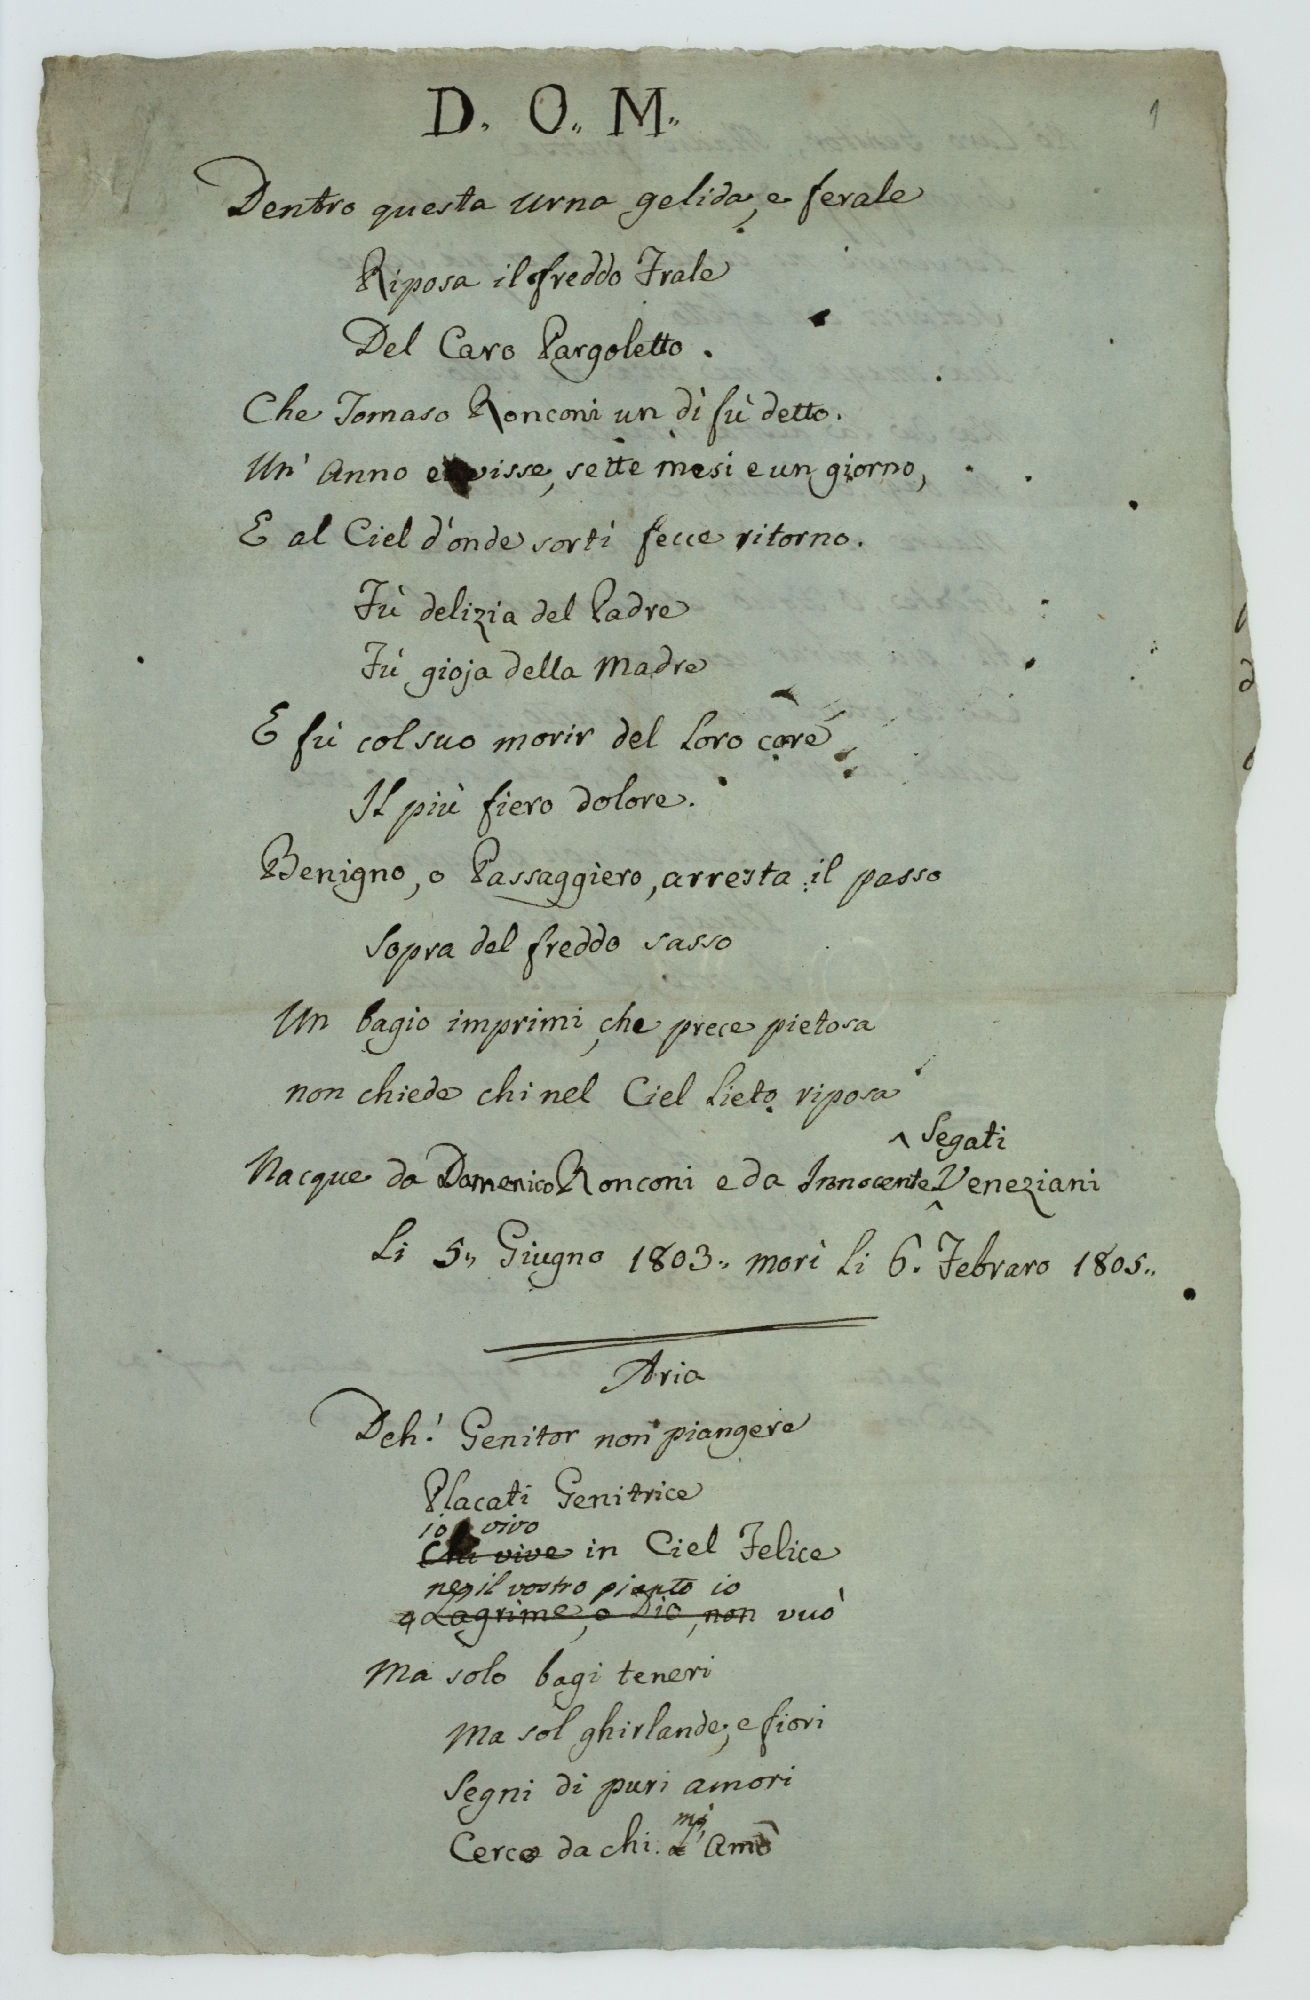 1
D. O. M.
Dentro questa urna gelida, e ferale
Riposa il freddo Frale
Del Caro Pargoletto.
Che Tomaso Ronconi un dì fù detto.
Un' Anno visse, sette mesi e un giorno,
E al Ciel d'onde sortì fecce ritorno.
Fù delizia del Padre
Fù gioja della Madre
E fù col suo morir del Loro core
Il più fiero dolore.
Benigno, o Passaggiero, arresta il passo
Sopra del freddo sasso
Un bagio imprimi, che prece pietosa
non chiede chi nel Ciel Lieto riposa
^ Segati
Nacque da Domenico Ronconi e da Innocente ^ Veneziani
Li 5,, Giugno 1803,, morì Li 6. Febraro 1805,,
Aria
Deh! Genitor non piangere
Placati Genitrice
io vivo
Chi vive in Ciel Felice
neg il vostro pianto io
Lagrime, o Dio, non vuò
Ma solo bagi teneri
Ma sol ghirlande, e fiori
Segni di puri amori
mi
Cerco da chi L' Amò